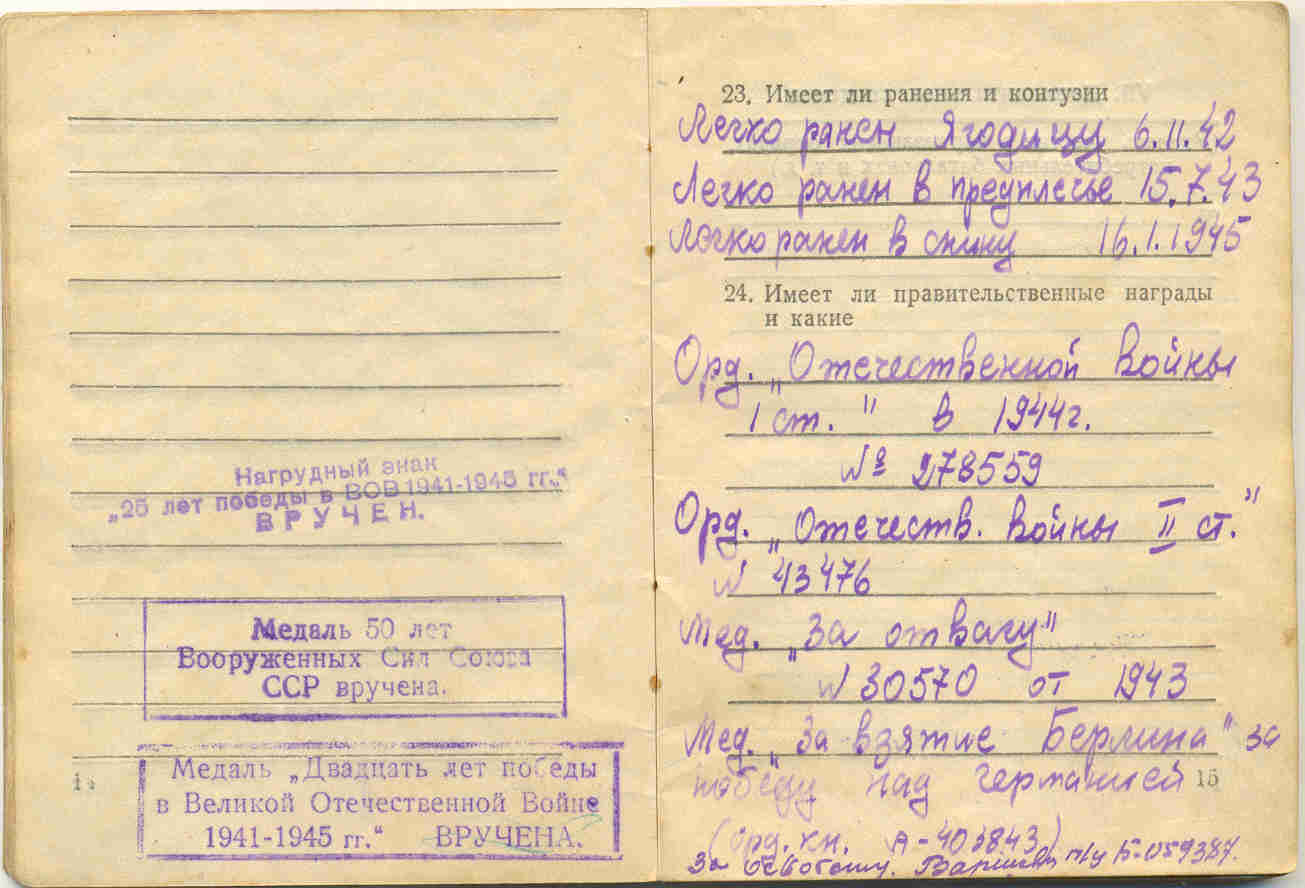 Нагрудный знак
„25 лет победы в ВОВ 1941-1945 гг.“
ВРУЧЕН.
Медаль 50 лет
Вооруженных Сил Союза
ССР вручена.
Медаль „Двадцать лет победы
в Великой Отечественной Войне
1941-1945 гг.“ ВРУЧЕНА.
14
23. Имеет ли ранения и контузии
Легко ранен Ягодицу 6.11.42
Легко ранен в предплечье 15.7.43
Легко ранен в спину 16.1.1945
24. Имеет ли правительственные награды
и какие
Орд. „Отечественной войны
1 ст." в 1944г.
№ 278559
Орд. „Отечеств. войны II ст."
N 43476
Мед. „За отвагу"
N 30570 от 1943
Мед. „За взятие Берлина" за
победу над Германией
15
(Орд. кн. А-403843)
За освобожд. Варшавы п/у Б-059387.